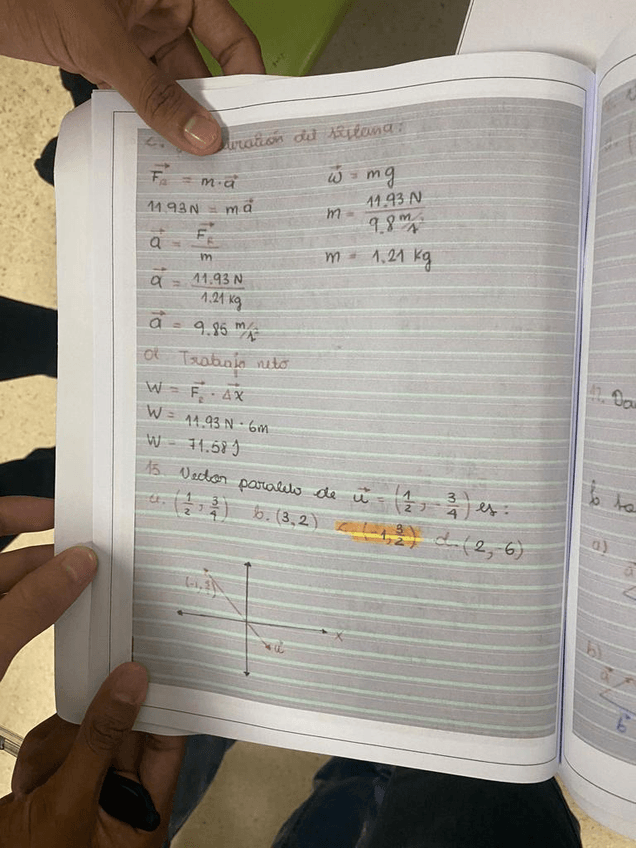 c. del sistema:
F⃗R = m·a⃗
11.93 N = m a⃗
a⃗ = F⃗R / m
a⃗ = 11.93 N / 1.21 kg
a⃗ = 9.85 m/s²
w⃗ = mg
m = 11.93 N / 9.8 m/s²
m = 1.21 kg
d. Trabajo neto
W = F⃗R · Δx⃗
W = 11.93 N · 6m
W = 71.58 J
15. Vector paralelo de u⃗ = (1/2, -3/4) es:
a. (1/2, 3/4) b. (3, 2) c. (-1, 3/2) d. (2, -6)
(-1, 3/2)
x
u⃗
17.
a)
b)
a⃗
b⃗